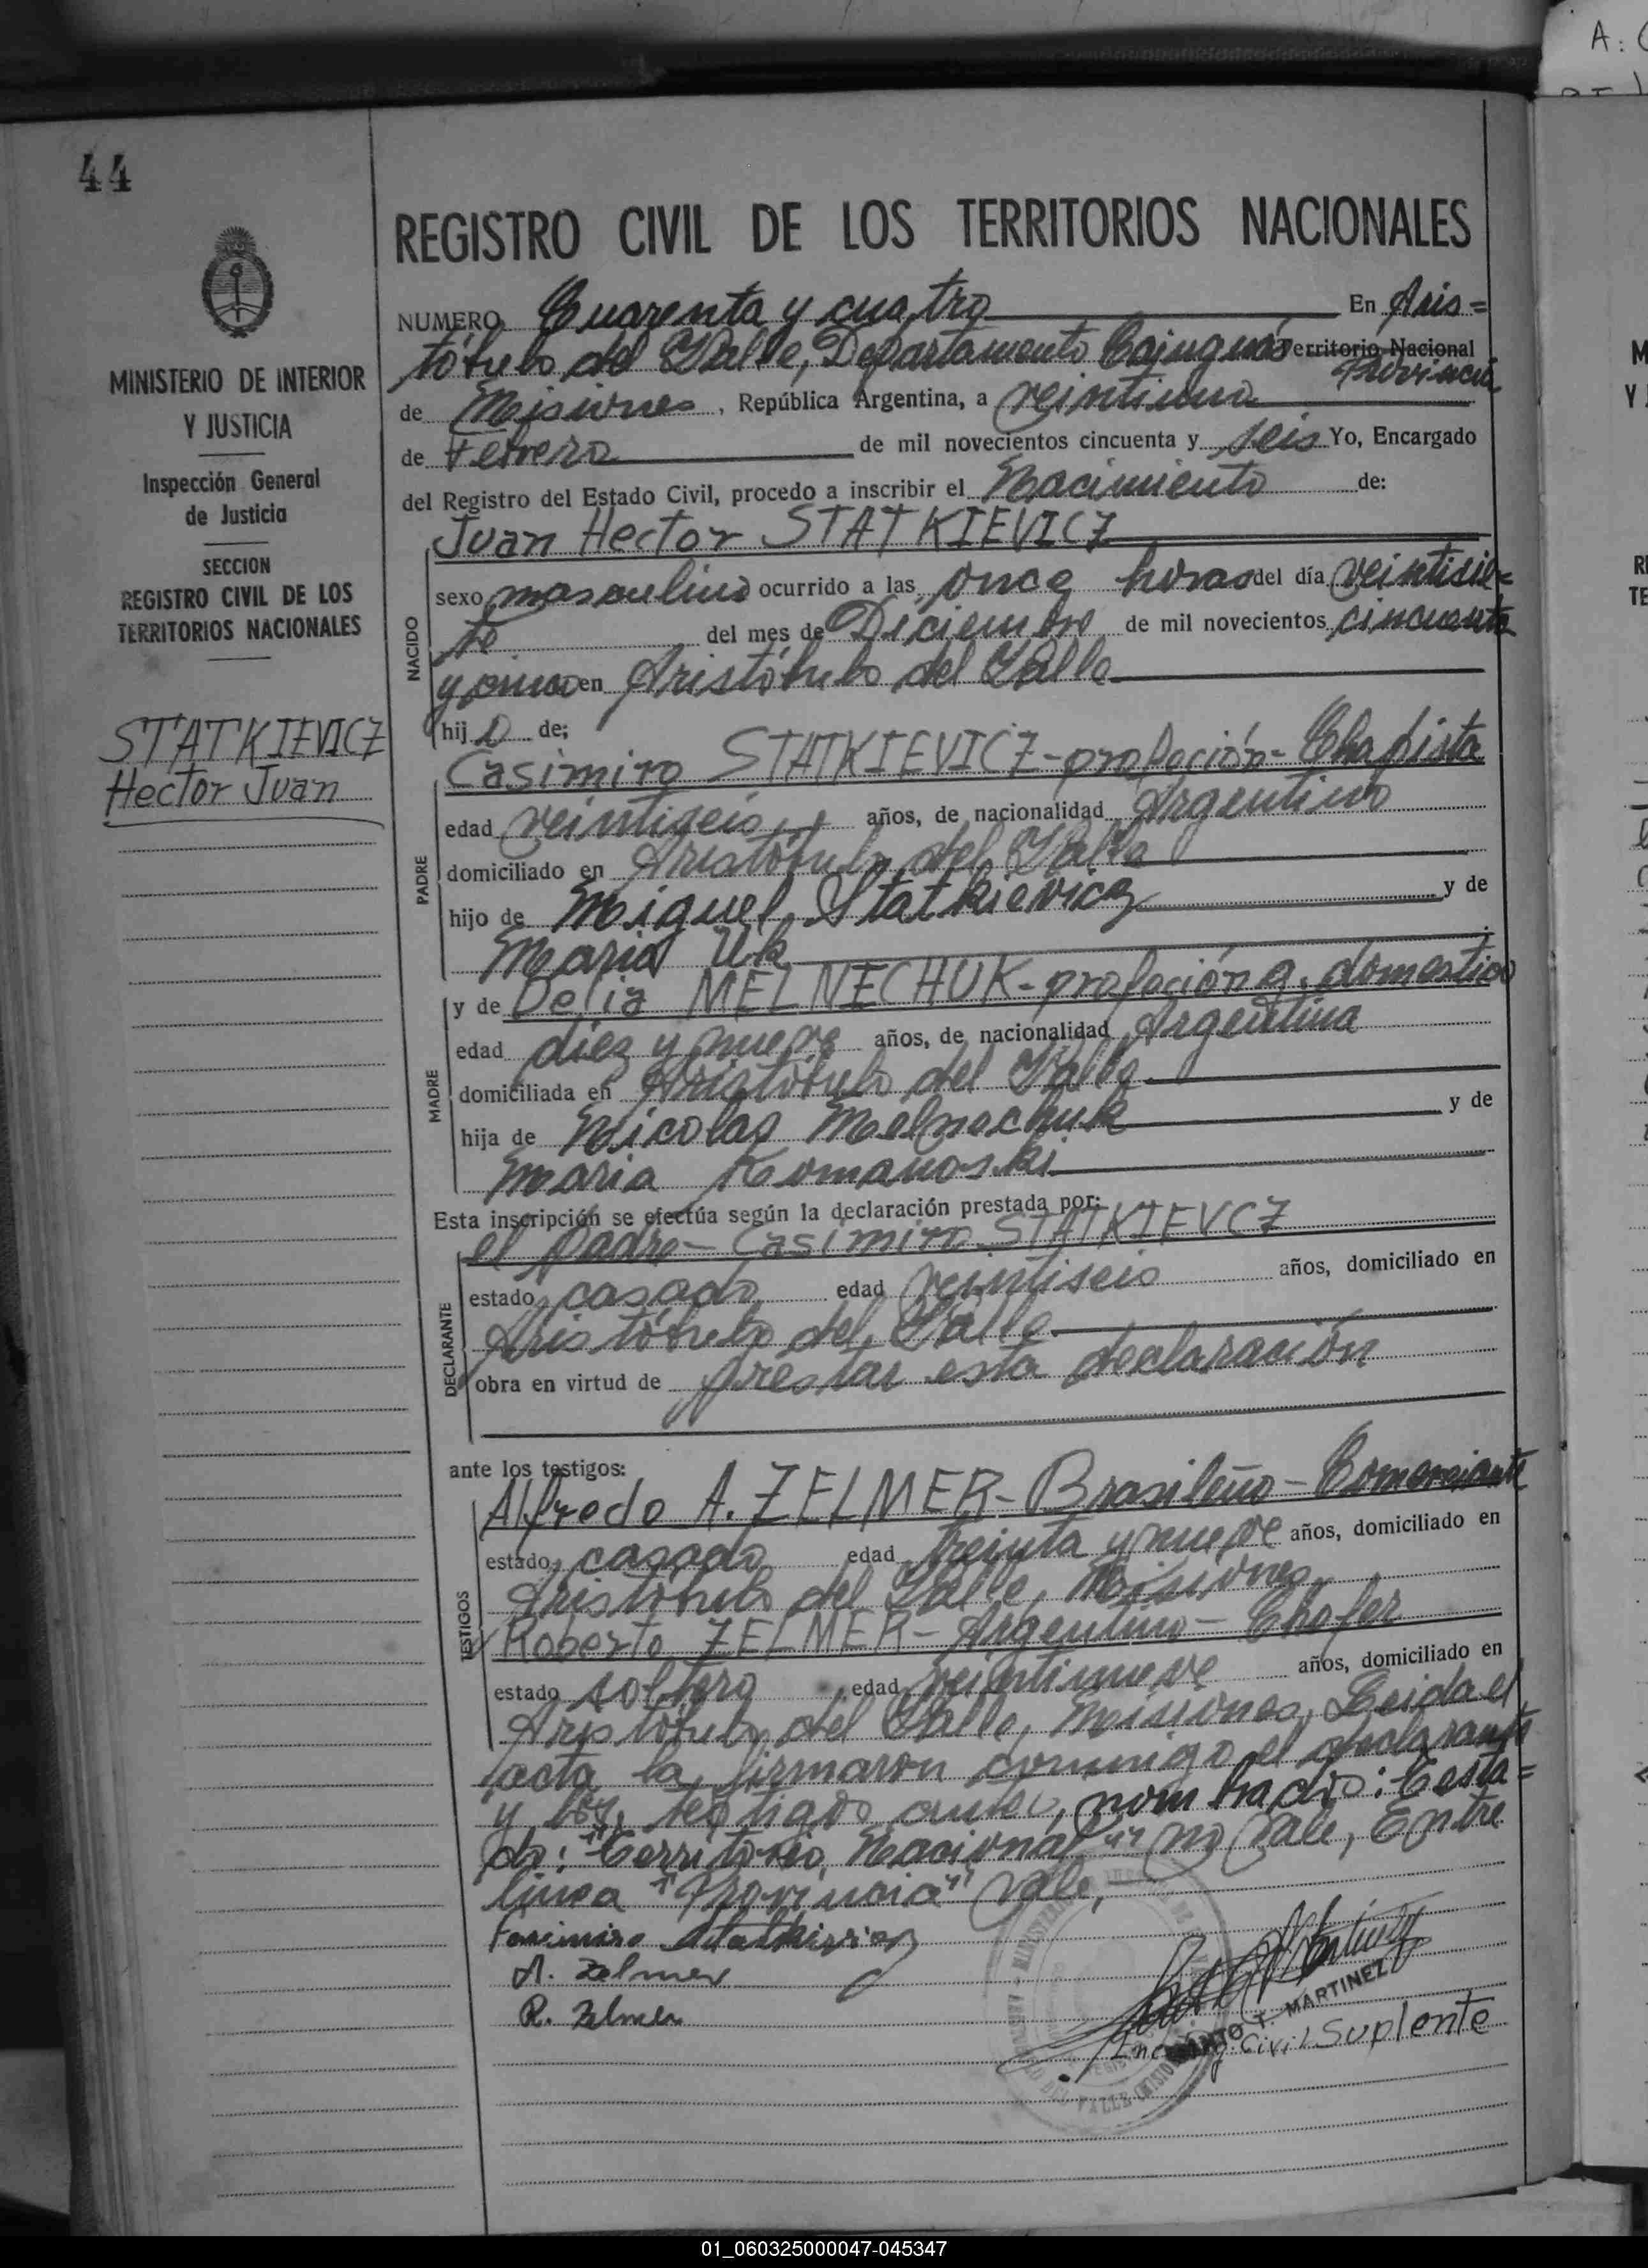 A: C
44
REGISTRO CIVIL DE LOS TERRITORIOS NACIONALES
MINISTERIO DE INTERIOR
Y JUSTICIA
Inspección General
de Justicia
SECCION
REGISTRO CIVIL DE LOS
TERRITORIOS NACIONALES
STATKIEVICZ
Hector Juan
NUMERO Cuarenta y cuatro En Aris=
tóbulo del Valle, Departamento Cainguás Territorio Nacional
Provincia
de Misiones, República Argentina, a veintiuno
de Febrero de mil novecientos cincuenta y seis Yo, Encargado
del Registro del Estado Civil, procedo a inscribir el Nacimiento de:
NACIDO
Juan Hector STATKIEVICZ
sexo masculino ocurrido a las once horas del día veintisie=
te del mes de Diciembre de mil novecientos cincuenta
y cinco en Aristóbulo del Valle
hijo de;
PADRE
Casimiro STATKIEVICZ-profeción- Chapista
edad veintiseis años, de nacionalidad Argentino
domiciliado en Aristóbulo del Valle
hijo de Miguel Statkievicz y de
Maria Uk
MADRE
y de Delia MELNECHUK-profeción q. domestico
edad diez y nueve años, de nacionalidad Argentina
domiciliada en Aristóbulo del Valle
hija de Nicolas Melnechuk y de
Maria Romanoski
Esta inscripción se efectúa según la declaración prestada por:
DECLARANTE
el padre- Casimiro STATKIEVCZ
estado casado edad veintiseis años, domiciliado en
Aristóbulo del Valle
obra en virtud de prestar esta declaración
ante los testigos:
TESTIGOS
Alfredo A. ZELMER- Brasileño- Comerciante
estado casado edad treinta y nueve años, domiciliado en
Aristóbulo del Valle, Misiones,
y Roberto ZELMER- Argentino- Chofer
estado soltero edad veintinueve años, domiciliado en
Aristóbulo del Valle, Misiones, Leida el
acta la firmaron conmigo el declarante
y los testigos antes nombrado: Testa=
do: "Territorio Nacional" no vale, Entre
linea "Provincia" Vale,
Casimiro Statkievicz
A. Zelmer
R. Zelmer
T. MARTINEZ
Civil Suplente
01_060325000047-045347